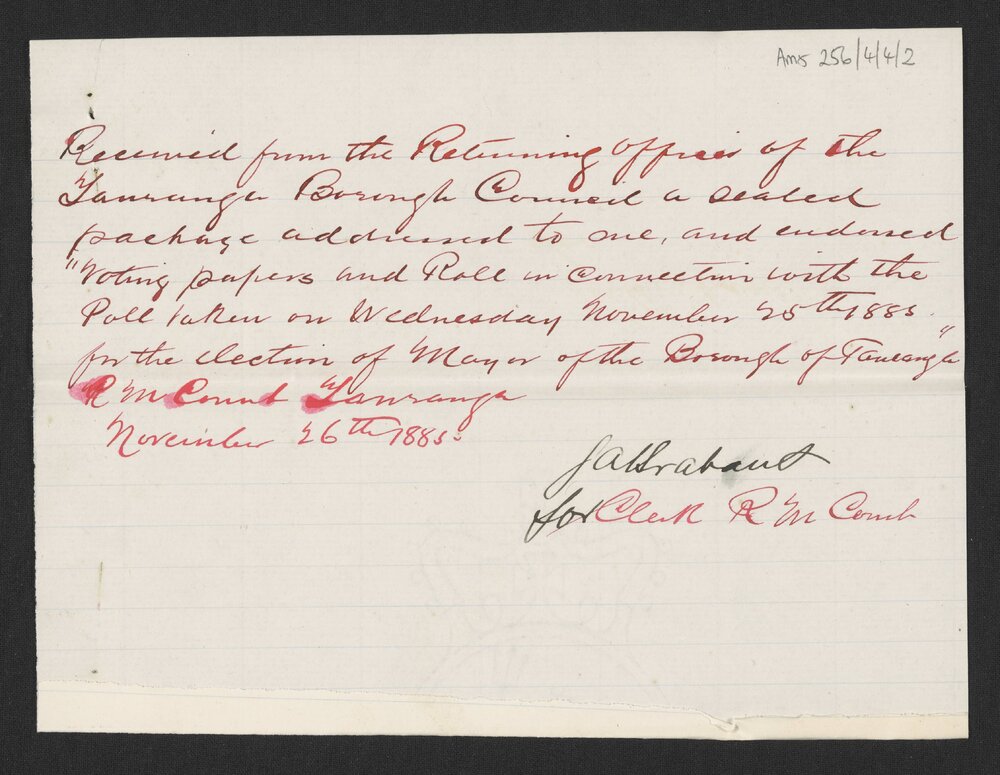 Ams 256/4/4/2
Received from the Returning Officer of the
Tauranga Borough Council a sealed
package addressed to me, and endorsed
"Voting papers and Roll in connection with the
Poll taken on Wednesday November 25th 1885.
for the election of Mayor of the Borough of Tauranga"
R M Court Tauranga
November 26th 1885.
for Clerk R M Court